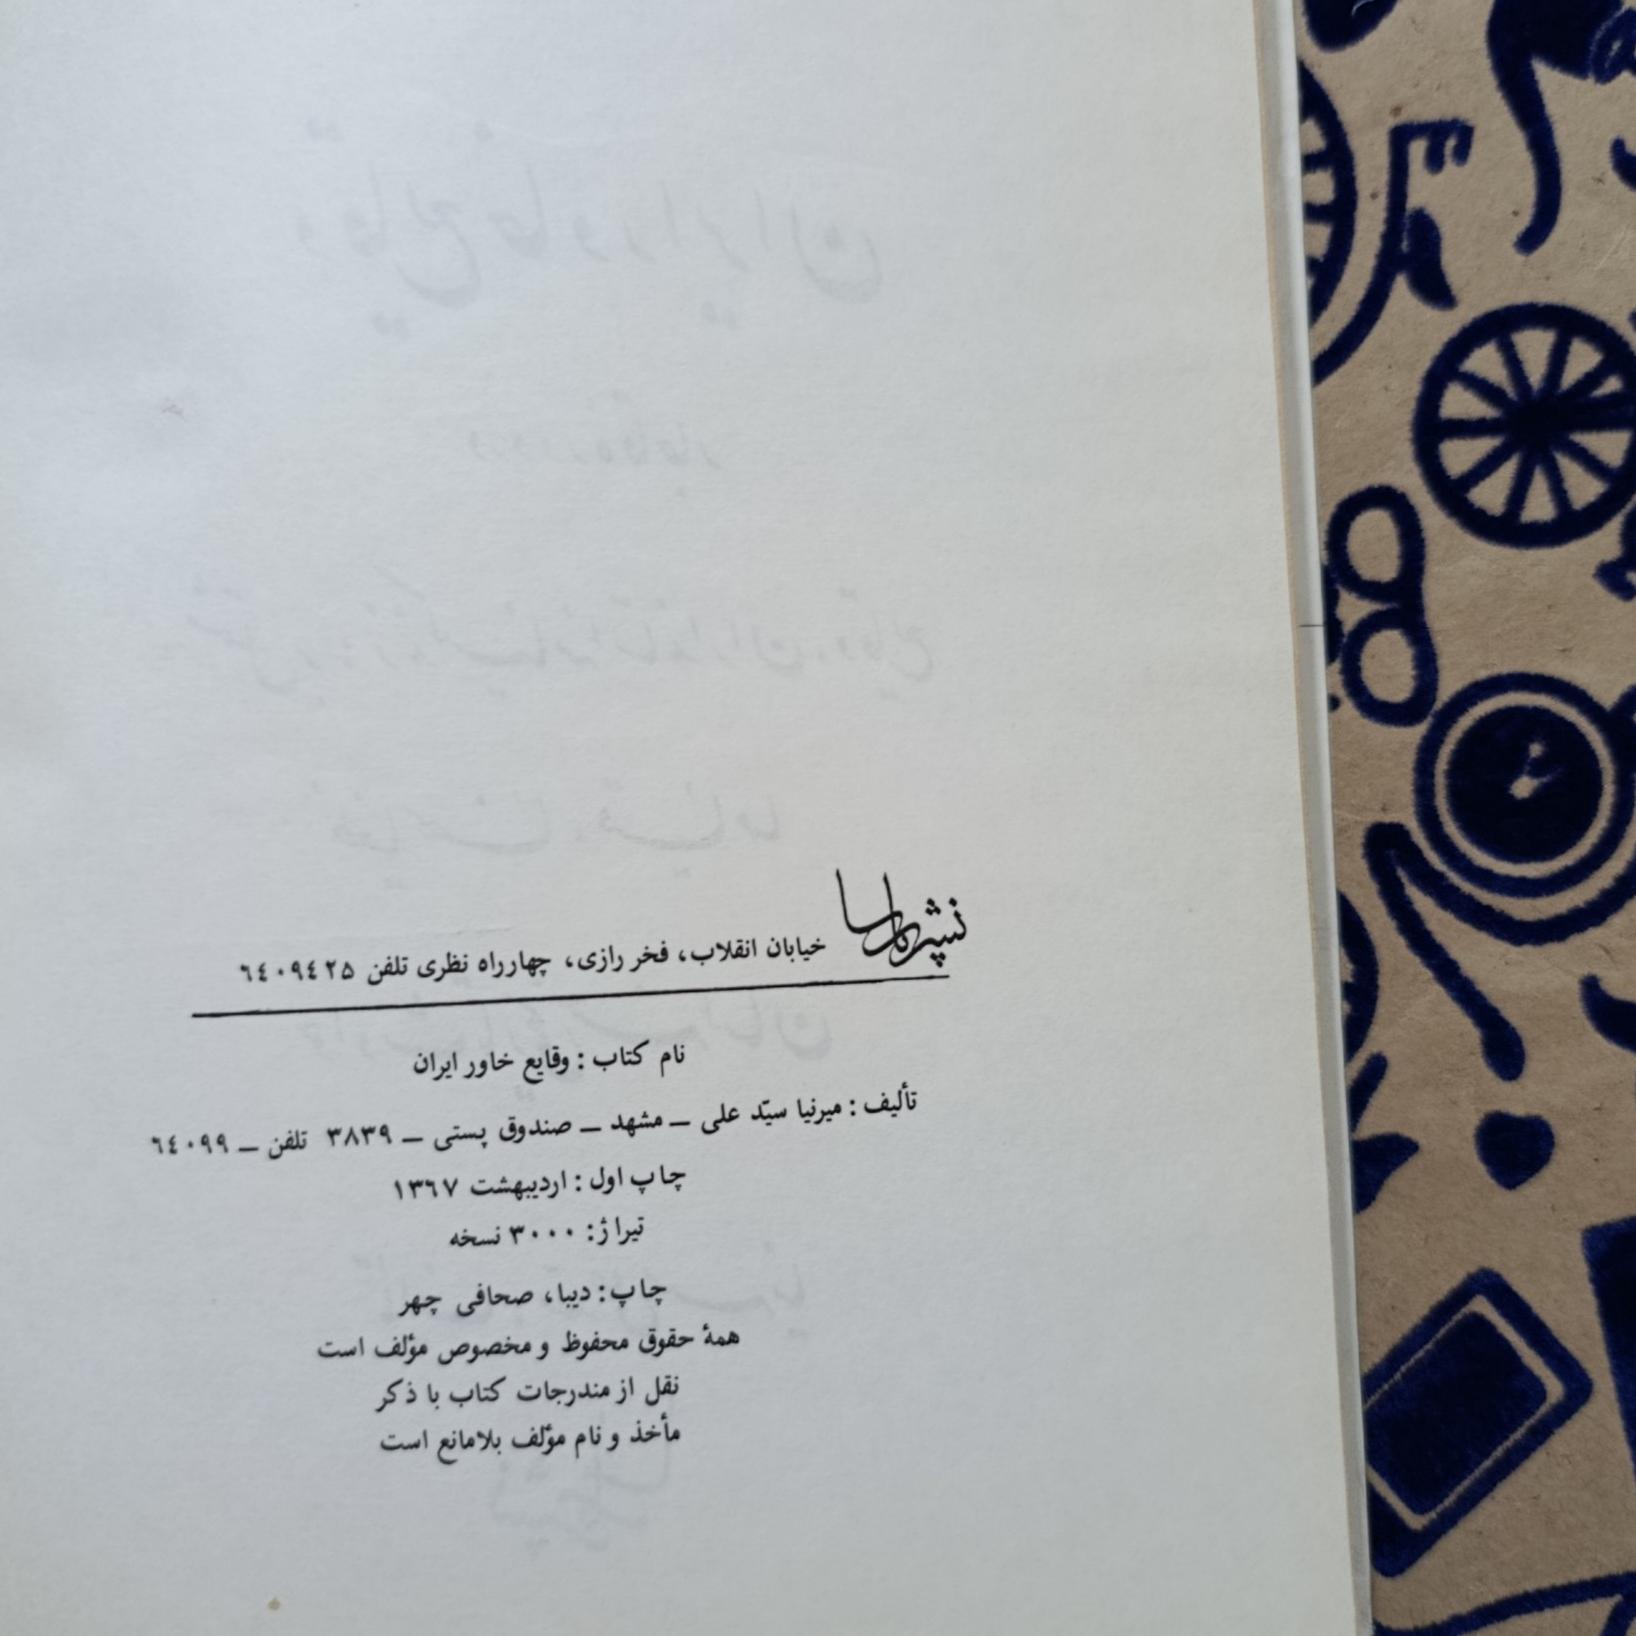 نشر پارسا
خیابان انقلاب، فخر رازی، چهارراه نظری تلفن ٦٤٠٩٤٢۵
نام کتاب : وقایع خاور ایران
تألیف : میرنیا سیّد علی ــ مشهد ــ صندوق پستی ــ ۳۸۳۹ تلفن ــ ٦٤٠٩٩
چاپ اول : اردیبهشت ١٣٦٧
تیراژ: ۳۰۰۰ نسخه
چاپ: دیبا، صحافی چهر
همهٔ حقوق محفوظ و مخصوص مؤلف است
نقل از مندرجات کتاب با ذکر
مأخذ و نام مؤلف بلامانع است